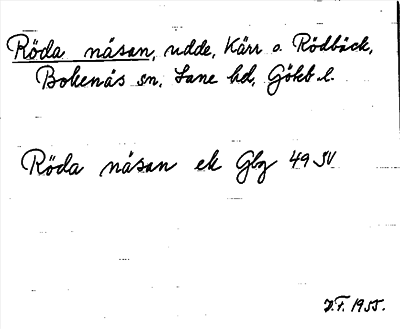 Röda näsan, udde, Kärr o. Rödbäck,
Bokenäs sn, Lane hd, Göbb.l.
Röda näsan ek Gbg 49 SV
D.F. 1955.